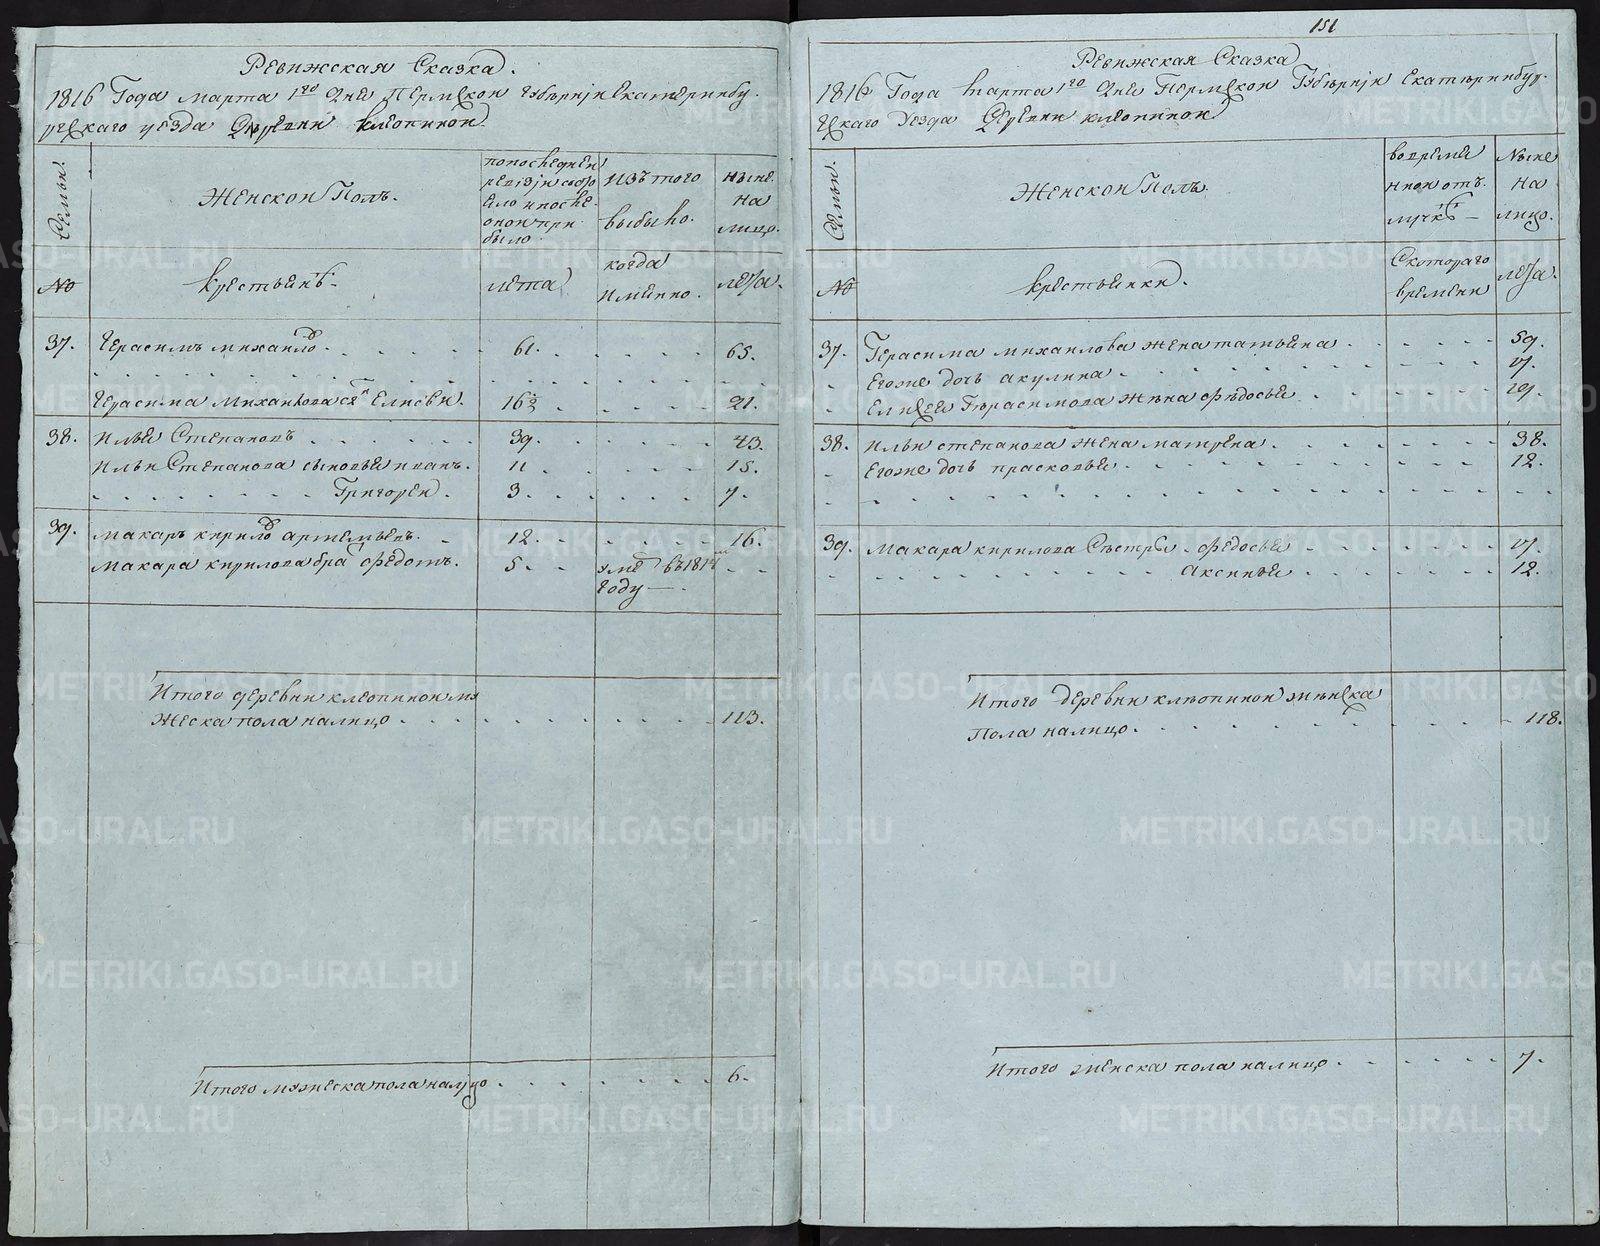 151
Ревижская Сказка.
1816 Года марта 1го дня Пермской губернiи Екатеринбу-
ргскаго уезда Деревни клеопиной
Семьи.
Женской Полъ.
попоследней
ревизiи состо
яло ипосле
оной при
было
Изъ того
выбыло.
ныне
на
лицо.
№
крестьянъ.
лета
когда
Имянно.
лета.
37. Герасимъ михаило 61. 65.
Герасима Михаилова сн Елисеи. 16½ 21.
38. Илья Степановъ 39. 43.
Ильи Степанова сыновья иванъ. 11 15.
Григореи. 3. 7.
39. макаръ кирило артемьевъ. 12. 16.
Макара кирилова бра федотъ. 5. уме въ1814м
году
Итого деревни клеопиной му
жеска пола налицо 113.
Итого мужеска пола налицо 6.
Ревижская Сказка
1816 Года марта 1го дня Пермской Губернiи Екатеринбур-
гскаго Уезда Деревни клеопиной
Семьи.
Женской Полъ.
вовремя
ннои отъ
лучкѣ
Ныне
на
лицо.
№
крестьянки.
Скотораго
времени
лета.
37. Герасима михаилова жена татьяна 59.
Егоже дочь акулина 17.
Елисея Герасимова жена федосья 19.
38. Ильи степанова жена матрена 38.
Егоже дочь прасковья 12.
39. Макара кирилова Сестры федосья 17.
Аксинья 12.
Итого деревни клеопиной женска
Пола налицо. 118.
Итого женска пола налицо 7.
METRIKI.GASO-URAL.RU